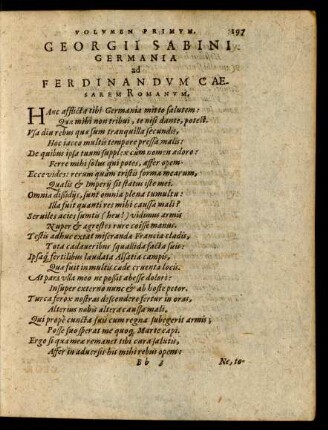 VOLVMEN PRIMVM. 197
GEORGII SABINI
GERMANIA
ad
FERDINANDVM CAE-
SAREM ROMANVM.
HAnc afflicta tibi Germania mitto salutem:
Qua mihi non tribui, te nisi dante, potest.
Vsa diu rebus quæ sum tranquilla secundis,
Hoc iaceo multis tempore pressa malis:
De quibus ipsa tuum supplex cum nomen adora:
Ferre mihi solus qui potes, affer opem.
Ecce vides: rerum quàm tristis forma mearum,
Qualis & Imperij sit status iste mei.
Omnia dissidijs, sunt omnia plena tumultu:
Illa fuit quanti res mihi caussa mali?
Seruiles acies sumtis (heu!) vidimus armis
Nuper & agrestes rure coisse manus.
Testis adhuc extat miseranda Francia cladis,
Tota cadaueribus squalida facta suis:
Ipsaq́; fertilibus laudata Alsatia campis,
Quæ fuit in multis cæde cruenta locis.
At para vila meo ne possis abesse dolori:
Insuper externo nunc & ab hoste petor.
Turca ferox nostras descendere fertur in oras,
Alterius nobis altera caussa mali.
Qui propè cuncta suis cum regna subegerit armis;
Posse suo sperat me quoq; Marte capi.
Ergo si qua mea remanet tibi cura salutis,
Affer in aduersis his mihi rebus opem:
B b 3 Ne, to-